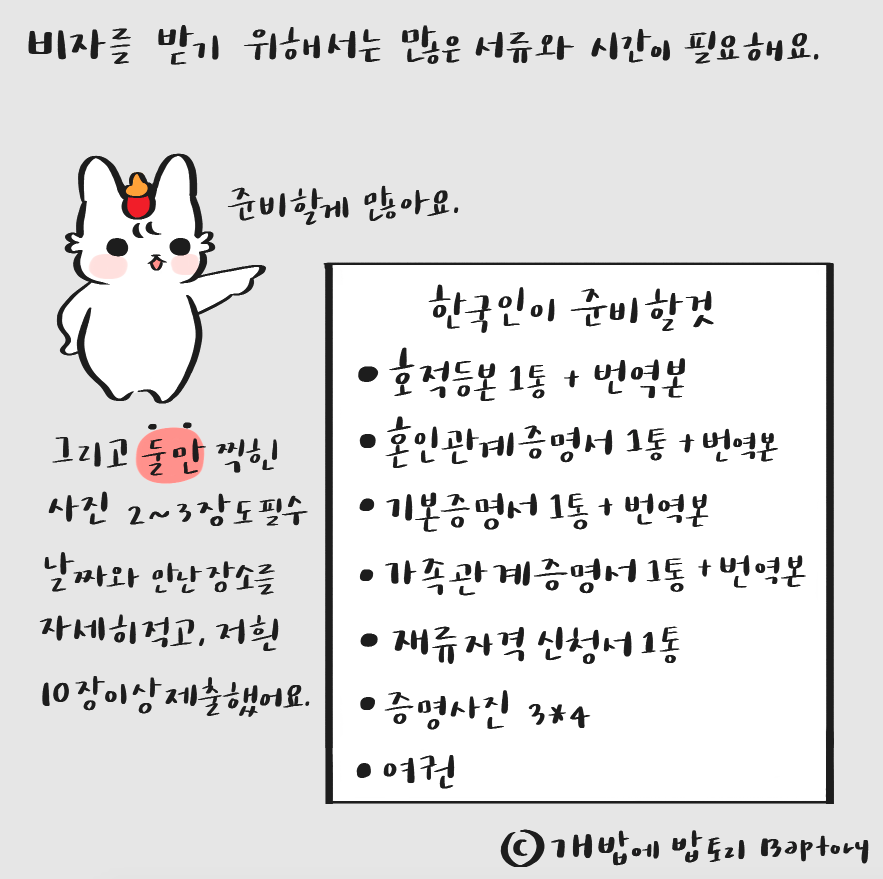 비자를 받기 위해서는 많은 서류와 시간이 필요해요.
준비할게 많아요.
한국인이 준비할것
• 호적등본 1통 + 번역본
• 혼인관계증명서 1통 + 번역본
• 기본증명서 1통 + 번역본
• 가족관계증명서 1통 + 번역본
• 재류자격 신청서 1통
• 증명사진 3*4
• 여권
그리고 둘만 찍힌
사진 2~3장도필수
날짜와 만난장소를
자세히적고, 저흰
10장이상 제출했어요.
ⓒ개밥에 밥토리 Baptory